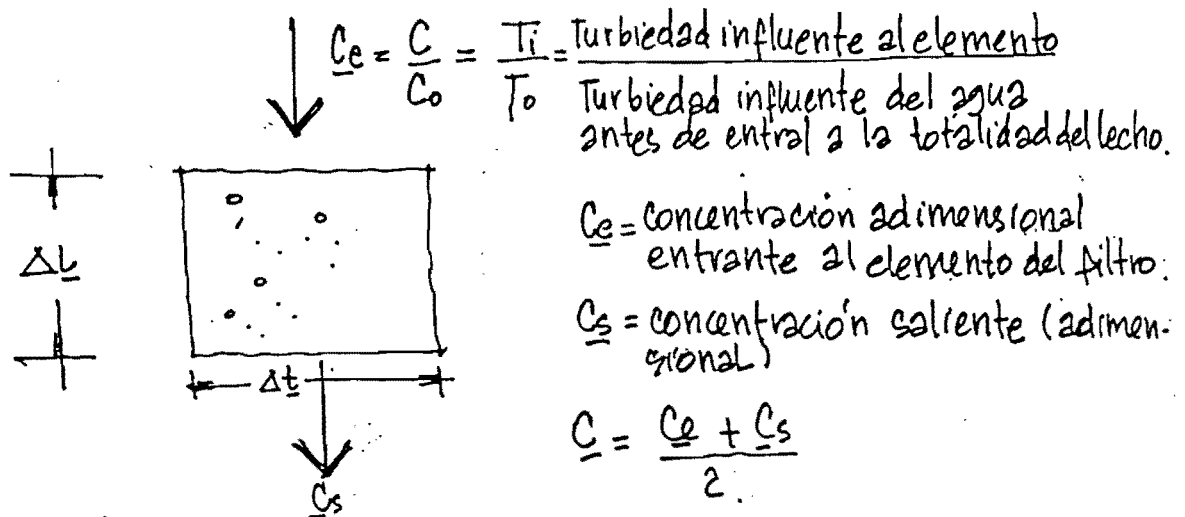 C̲e = C/C₀ = Ti/T₀ = Turbiedad influente al elemento
Turbiedad influente del agua
antes de entral a la totalidad del lecho.
ΔL̲
C̲e = concentración adimensional
entrante al elemento del filtro.
C̲s = concentración saliente (adimen-
sional)
Δt̲
C̲ = (C̲e + C̲s)/2.
C̲s